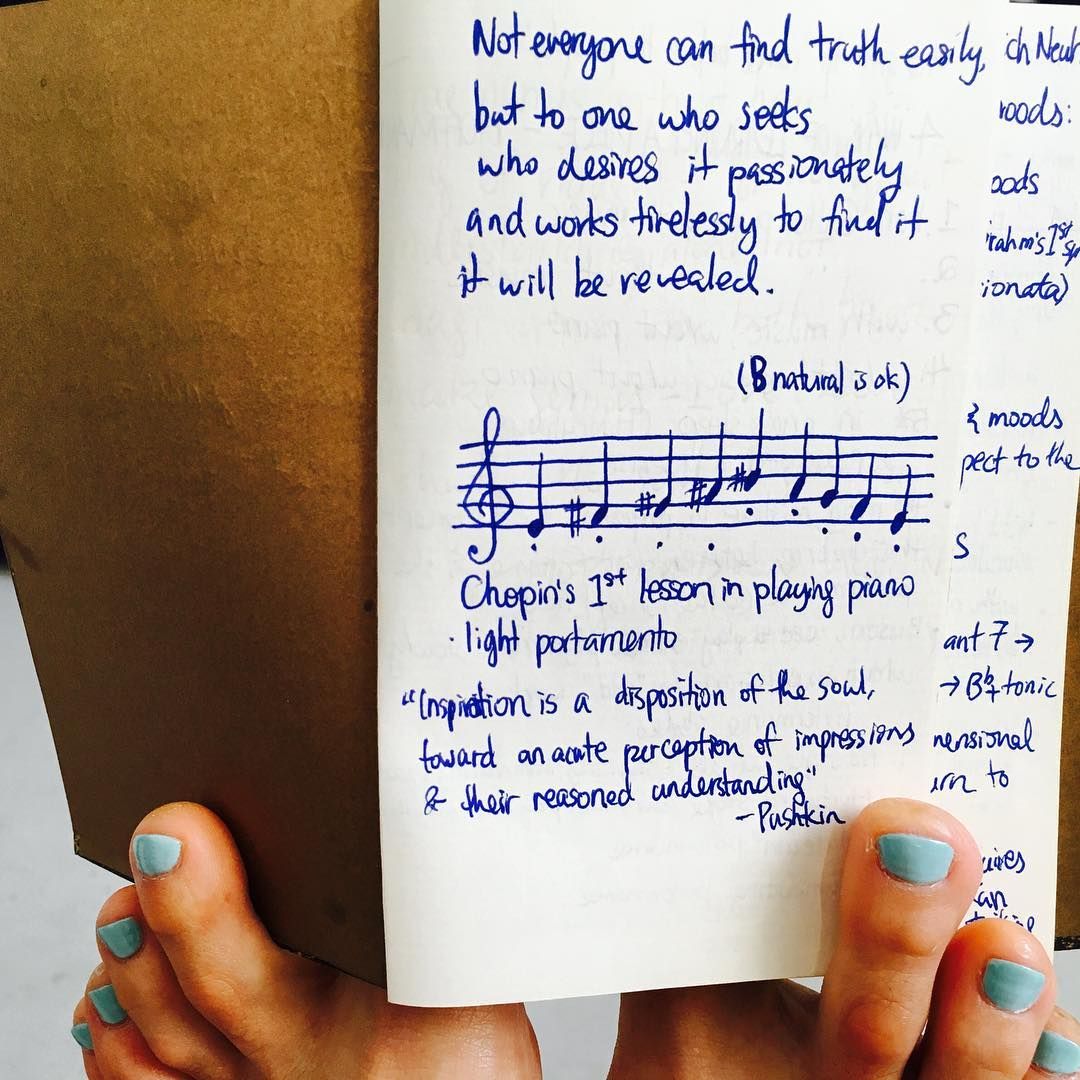 Not everyone can find truth easily,
but to one who seeks
who desires it passionately
and works tirelessly to find it
it will be revealed.
(B natural is ok)
Chopin's 1st lesson in playing piano
· light portamento
"Inspiration is a disposition of the soul,
toward an acute perception of impressions
& their reasoned understanding"
-Pushkin
ich Neuh
roods:
oods
rahm's 1st Sy
ionata)
& moods
pect to the
s
ant 7 →
→ B♭+ tonic
nensional
urn to
uires